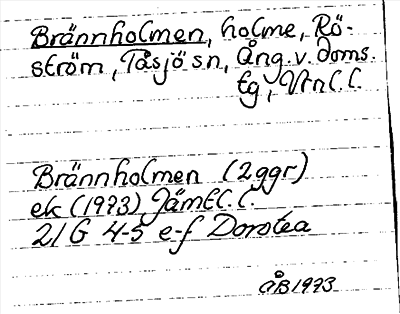 Brännholmen, holme, Rö-
ström, Tåsjö sn, Ång. v. Doms.
tg, Vtnl. l.
Brännholmen (2ggr)
ek (1973) Jämtl. l.
21 G 4-5 e-f Dorotea
ÅB 1973